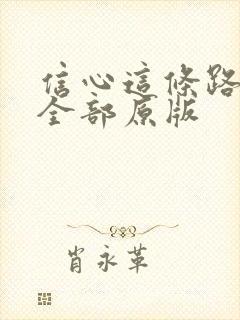 信心這條路
全部原版
肖永革